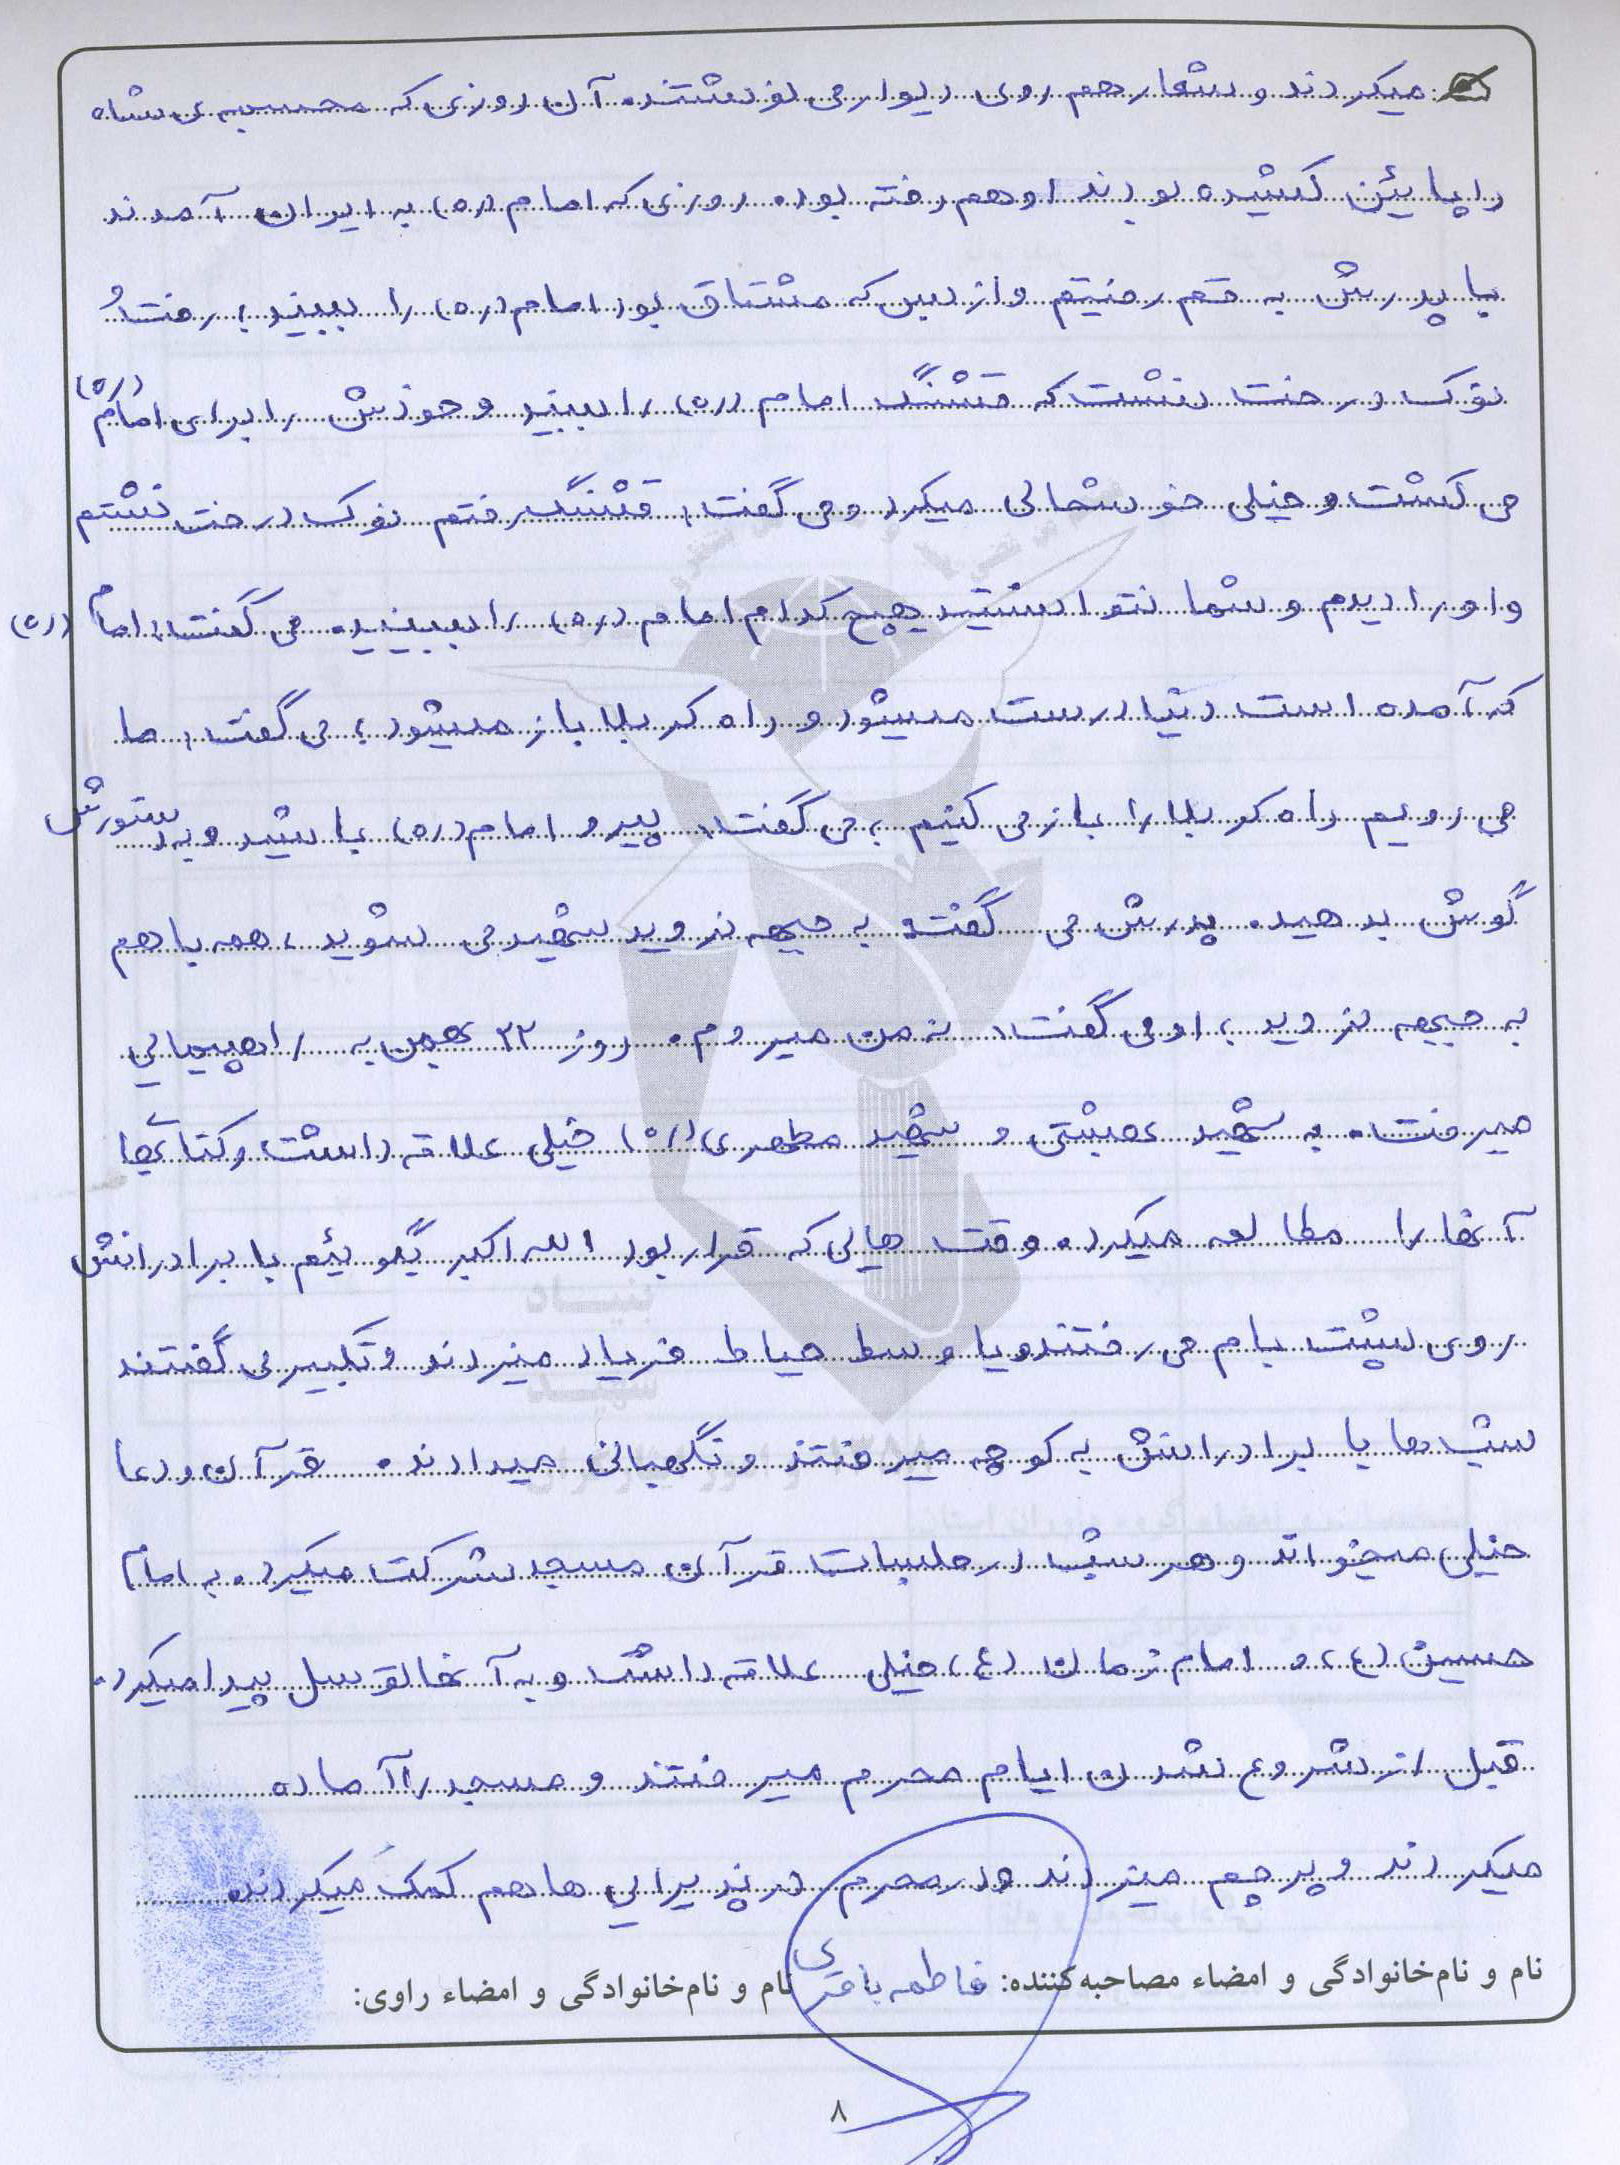 میکردند و شعار هم روی دیوار می نوشتند. آن روزی که مجسمه ی شاه
را پایئن کشیده بودند او هم رفته بود. روزی که امام (ره) به ایران آمدند
با پدرش به قم رفتیم و از بس که مشتاق بود امام (ره) را ببیند؛ رفت
نوک درخت نشست که قشنگ امام (ره) را ببیند و خودش را برای امام (ره)
می کشت و خیلی خوشحالی میکرد و می گفت: قشنگ رفتم نوک درخت نشستم
و او را دیدم و شما نتوانستید هیچ کدام امام (ره) را ببینید. می گفت: امام (ره)
که آمده است دنیا درست میشود و راه کربلا باز میشود؛ می گفت: ما
می رویم راه کربلا را باز می کنیم؛ می گفت: پیرو امام (ره) باشید و به دستورش
گوش بدهید. پدرش می گفت: به جبهه نروید شهید می شوید، همه با هم
به جبهه نروید؛ او می گفت: نه من میروم. روز ۲۲ بهمن به راهپیمایی
میرفت. به شهید بهشتی و شهید مطهری (ره) خیلی علاقه داشت و کتابهای
آنها را مطالعه میکرد. وقت هایی که قرار بود الله اکبر بگویئم با برادرانش
روی پشت بام می رفتند و یا وسط حیاط فریاد میزدند و تکبیر می گفتند
شب ها با برادرانش به کوچه میرفتند و نگهبانی میدادند. قرآن و دعا
خیلی میخواند و هر شب در جلسات قرآن مسجد شرکت میکرد. به امام
حسین (ع) و امام زمان (ع) خیلی علاقه داشت و به آنها توسل پیدا میکرد.
قبل از شروع شدن ایام محرم میرفتند و مسجد را آماده
میکردند و پرچم میزدند و در محرم در پذیرایی ها هم کمک میکردند.
نام و نام‌خانوادگی و امضاء مصاحبه‌کننده: فاطمه باقری نام و نام‌خانوادگی و امضاء راوی:
۸